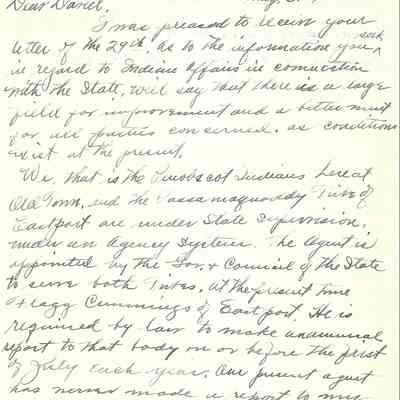 Dear Daniel,
I was pleased to receive your
letter of the 29th, as to the information you seek
in regard to Indian Affairs in connection
with the State, will say that there is a large
field for improvement and a better
for all parties concerned. as conditions
exist at the present.
We, that is the Penobscot Indians here at
Old Town, and the Passamaquoddy Tribe of
Eastport are under State Supervision,
under an Agency System. The Agent is
appointed by the Gov. & Council of the State
to serve both Tribes. At the present time
Cummings of Eastport. He is
required by law to make an annual
report to that body on or before the first
of July each year. Our present agent
has never made a report to my